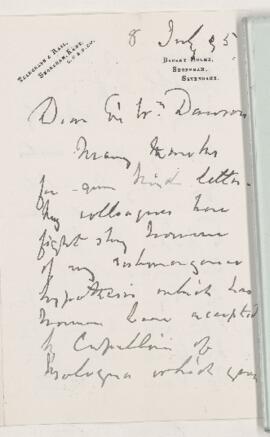 Telegraph & Rail,
Shoreham, Kent.
L.C.&D.Co.
8 July 95
Darent Hulme,
Shoreham,
Sevenoaks.
Dear Sir Wm Dawson
Many thanks
for your kind letter.
My colleagues have
fight shy however
of my
hypothesis which has
however been accepted
by Capellini of
Bologna which you